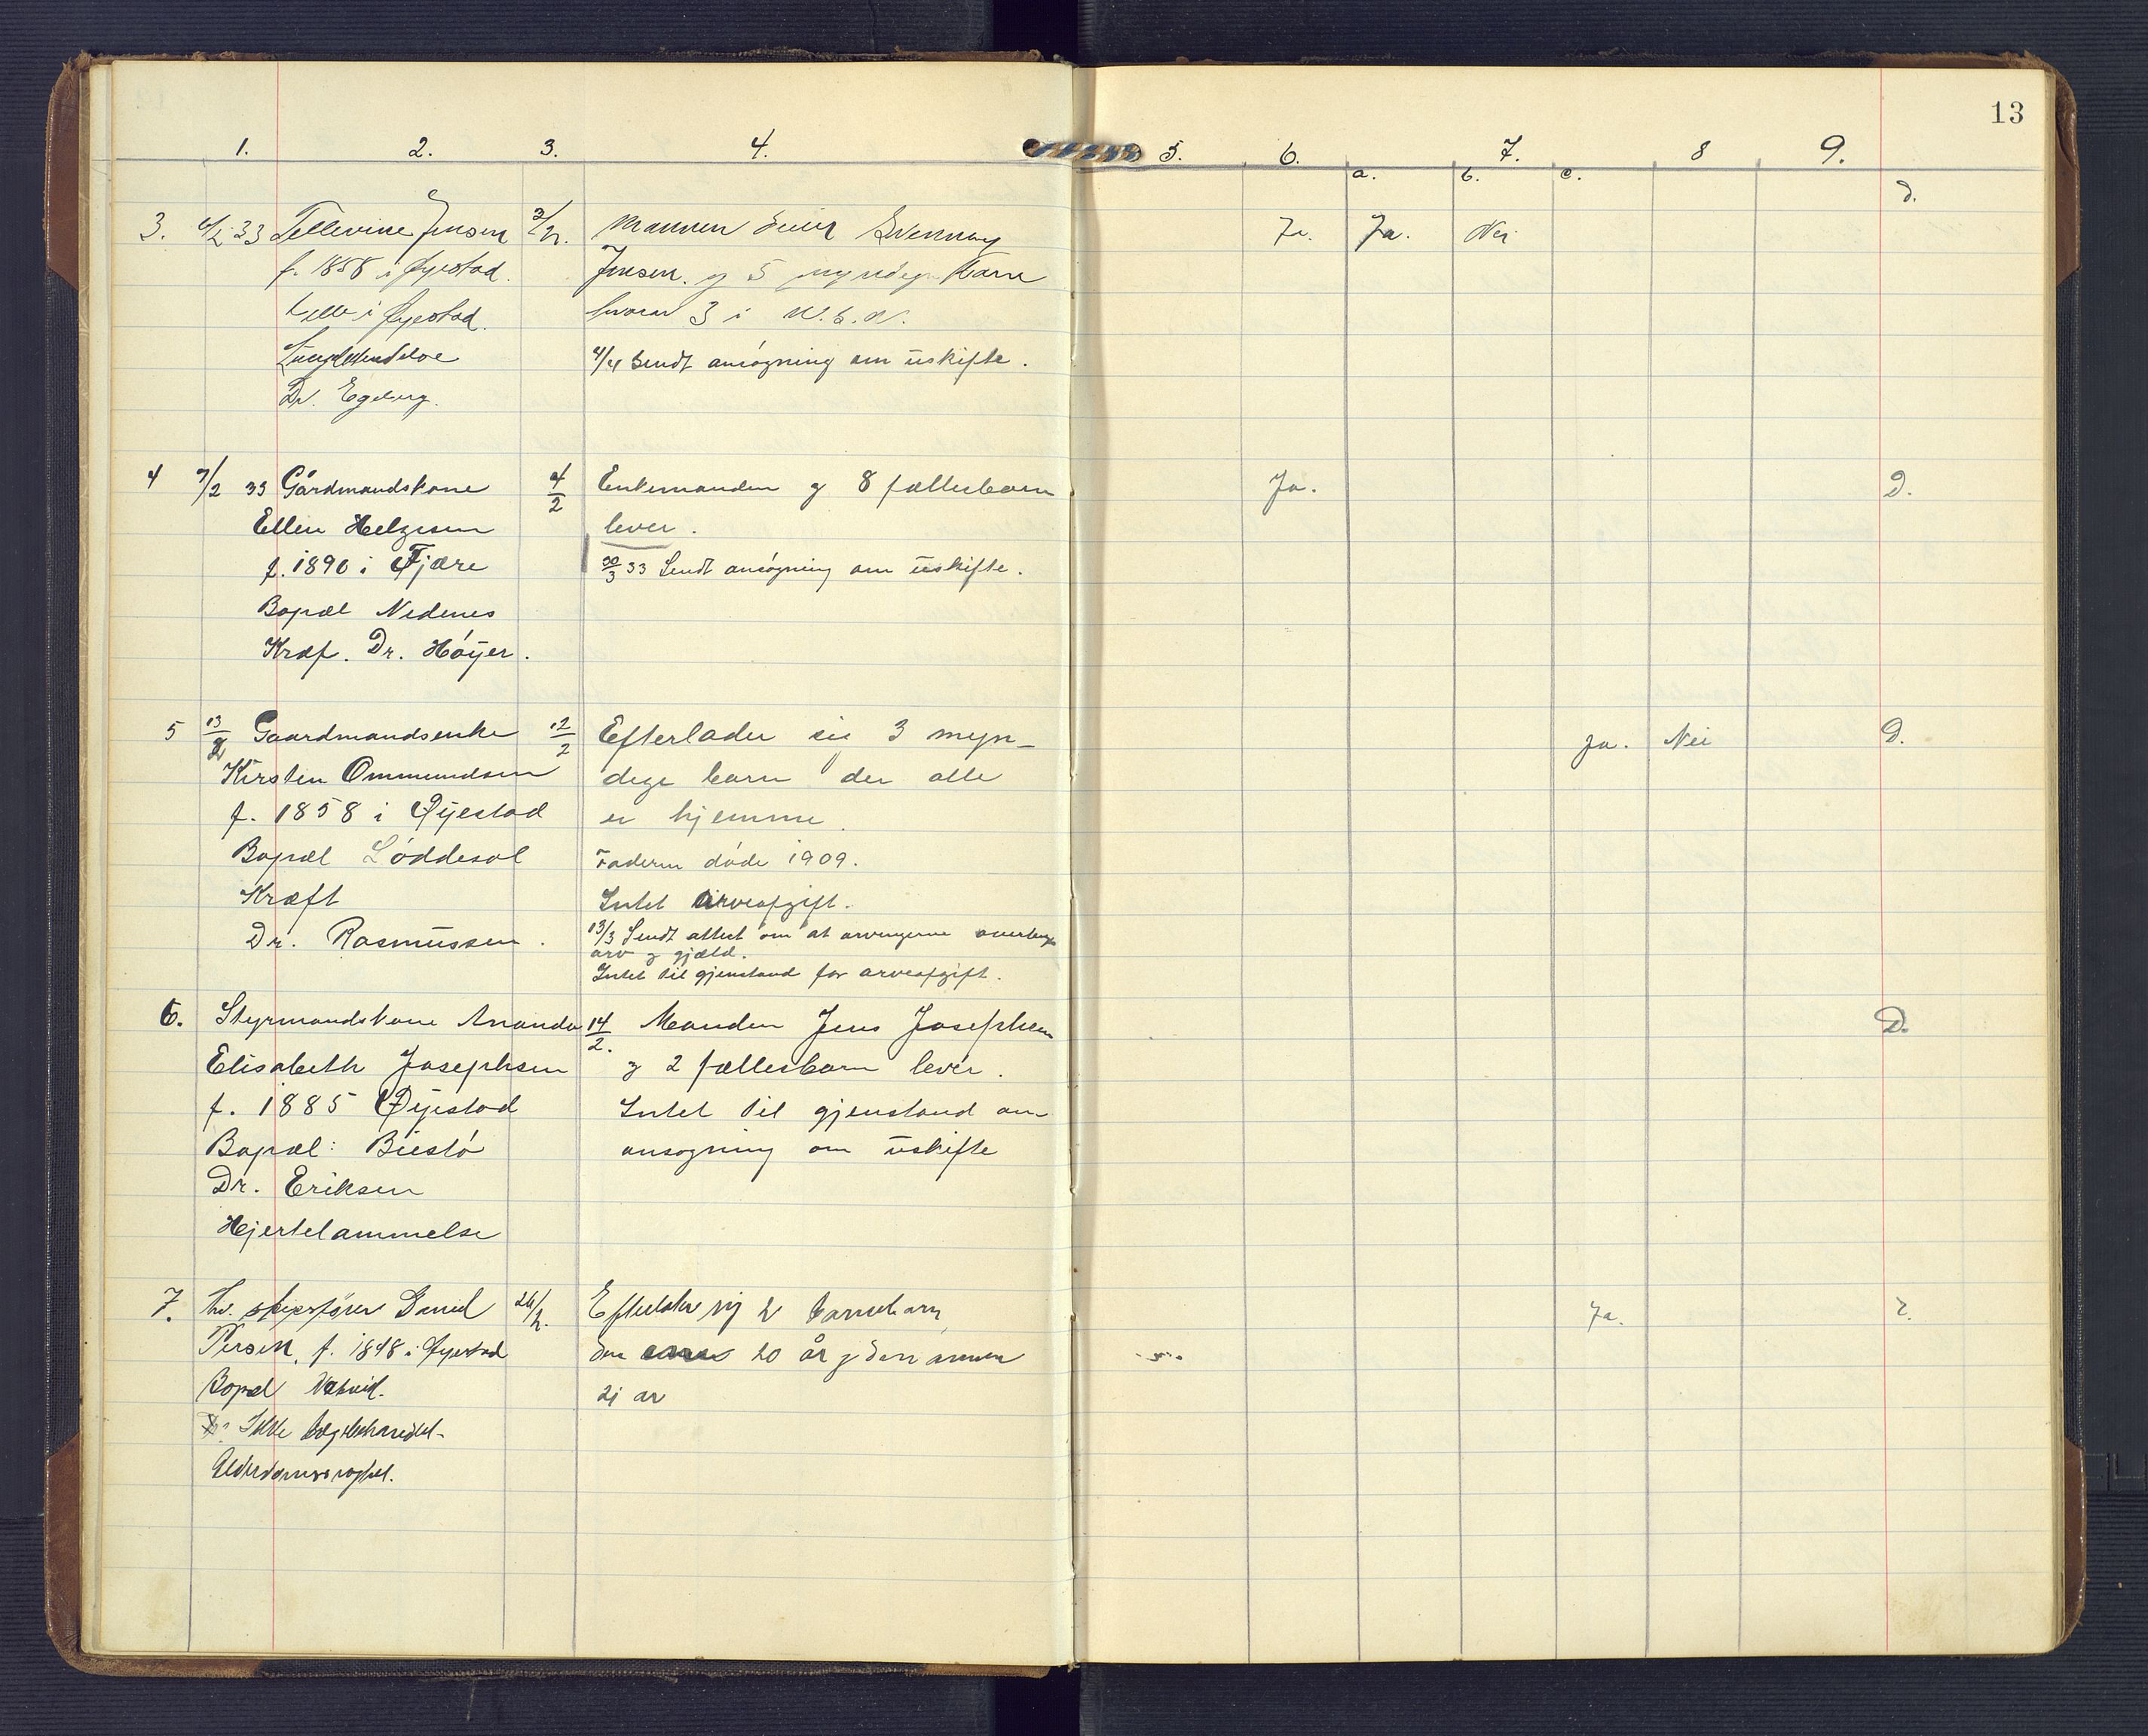 13
1. 2. 3. 4. 5. 6. 7. 8 9.
a. b. c.
d.
3. 4/2 33 Tellevine Jensen 3/2. Manden Svennung Ja. Ja. Nei
f. 1858 i Øyestad. Jensen. og 5 myndige barn
i Øyestad. hvorav 3 i
Lungebetendelse 4/4 Sendt ansøgning om uskifte.
Dr. Egeberg.
4 7/2 33 Gårdmandskone 4/2 Enkemanden og 8 fællesbarn Ja. D.
Ellen Helgesen lever.
f. 1890 i Fjære 30/3 33 Sendt ansøgning om uskifte.
Bopæl Nedenes
Kræf. Dr. Høyer.
5 13/2 Gaardmandsenke 12/2 Efterlader sig 3 myn- Ja. Nei D.
Kirsten Ommundsen dige barn der alle
f. 1858 i Øyestad er hjemme.
Bopæl Løddesøl Faderen døde 1909.
Kræft Intet arveafgift.
Dr. Rasmussen. 13/3 Sendt attest om at arvingerne overtager
arv og gjæld.
Intet til gjenstand for arveafgift.
6. Styrmandskone Amanda 14/2. Manden Jens Josephsen D.
Elisabeth Josephsen og 2 fællesbarn lever.
f. 1885 Øyestad Intet til gjenstand om
Bopæl: Biestø ansøgning om uskifte
Dr. Eriksen
Hjertelammelse
7. skipsfører Daniel 26/2. Efterlater sig 2 barnebarn, Ja.
Persen, f. 1848 i Øyestad den ene 20 år og den annen
Bopæl 21 år
Ikke lægebehandlet.
Alderdomssvaghet.